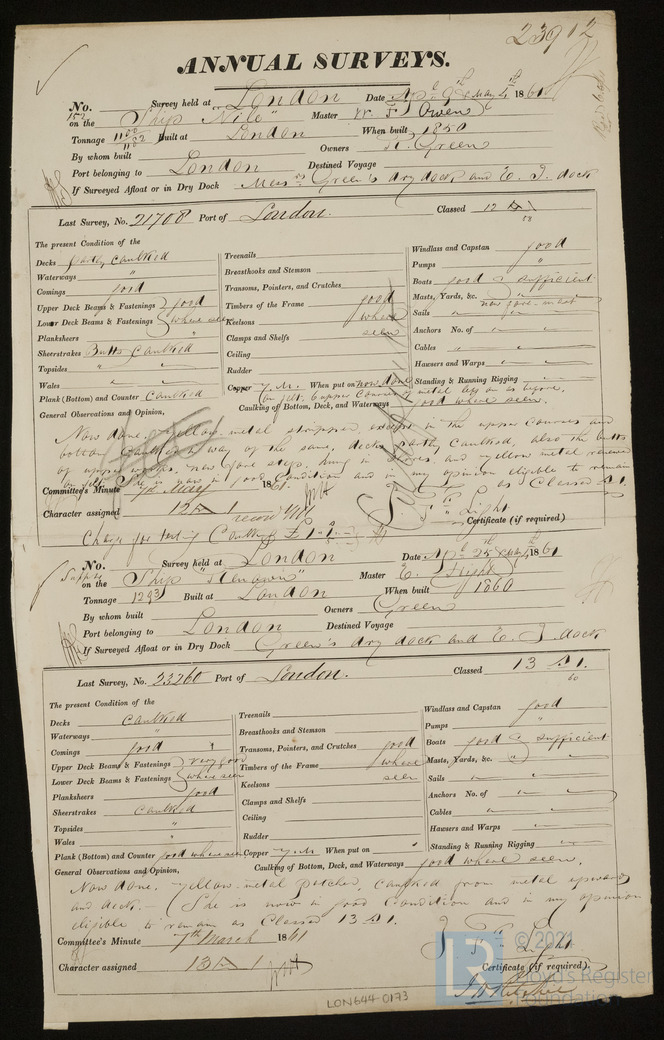 23912
ANNUAL SURVEYS.
No. Survey held at London Date Ap. 9 & May 4th 1861
on the Ship "Nile" Master W. F. Owen
Tonnage Built at London When built 1850
By whom built Owners R. Green
Port belonging to London Destined Voyage
If Surveyed Afloat or in Dry Dock Mess rs Green's dry dock and E. I. dock
Last Survey, No. 21708 Port of London. Classed 12 A 1
The present Condition of the
Decks partly caulked
Waterways "
Comings good
Upper Deck Beams & Fastenings good
Lower Deck Beams & Fastenings where seen
Planksheers "
Sheerstrakes Butts caulked
Topsides " "
Wales " "
Plank (Bottom) and Counter caulked
Treenails
Breasthooks and Stemson
Transoms, Pointers, and Crutches
Timbers of the Frame good
Keelsons where
Clamps and Shelfs seen
Ceiling
Rudder
Copper Y. M. When put on now done
Caulking of Bottom, Deck, and Waterways good where seen.
Windlass and Capstan good
Pumps "
Boats good sufficient
Masts, Yards, &c. "
now fore-mast
Sails " "
Anchors No. of " "
Cables " "
Hawsers and Warps
Standing & Running Rigging
General Observations and Opinion,
Now done, yellow metal stripped, except in the upper courses and
bottom caulked in way of the same, decks partly caulked, also the butts
of upper works, new fore step, hung in shores and yellow metal renewed
She is now in good Condition and in my opinion eligible to remain
as Classed A 1.
Committee's Minute 7th May 1861.
Character assigned 12 A 1
Light
Certificate (if required)
Charge for testing Caulking £1 "1 "
No. Survey held at London Date Ap. 25 & 1861
on the Ship "Renown" Master E. Flight
Tonnage 1293 Built at London When built 1860
By whom built Owners Green
Port belonging to London Destined Voyage
If Surveyed Afloat or in Dry Dock Green's dry dock and E. I. dock
Last Survey, No. 23260 Port of London. Classed 13 A 1.
60
The present Condition of the
Decks caulked
Waterways "
Comings good
Upper Deck Beams & Fastenings very good
Lower Deck Beams & Fastenings where seen
Planksheers good
Sheerstrakes caulked
Topsides "
Wales "
Plank (Bottom) and Counter good where seen
Treenails
Breasthooks and Stemson
Transoms, Pointers, and Crutches good
Timbers of the Frame where
Keelsons seen
Clamps and Shelfs
Ceiling
Rudder
Copper Y. M. When put on "
Caulking of Bottom, Deck, and Waterways good where seen.
Windlass and Capstan good
Pumps "
Boats good sufficient
Masts, Yards, &c. "
Sails " "
Anchors No. of " "
Cables " "
Hawsers and Warps " "
Standing & Running Rigging
General Observations and Opinion,
Now done, yellow-metal patched, caulked from metal upwards
and deck. She is now in good Condition and in my opinion
eligible to remain as Classed 13 A 1.
Committee's Minute 7th March 1861
Character assigned 13 A 1
Light
Certificate (if required)
LON644-0173
© 2021
Lloyd's Register
Foundation